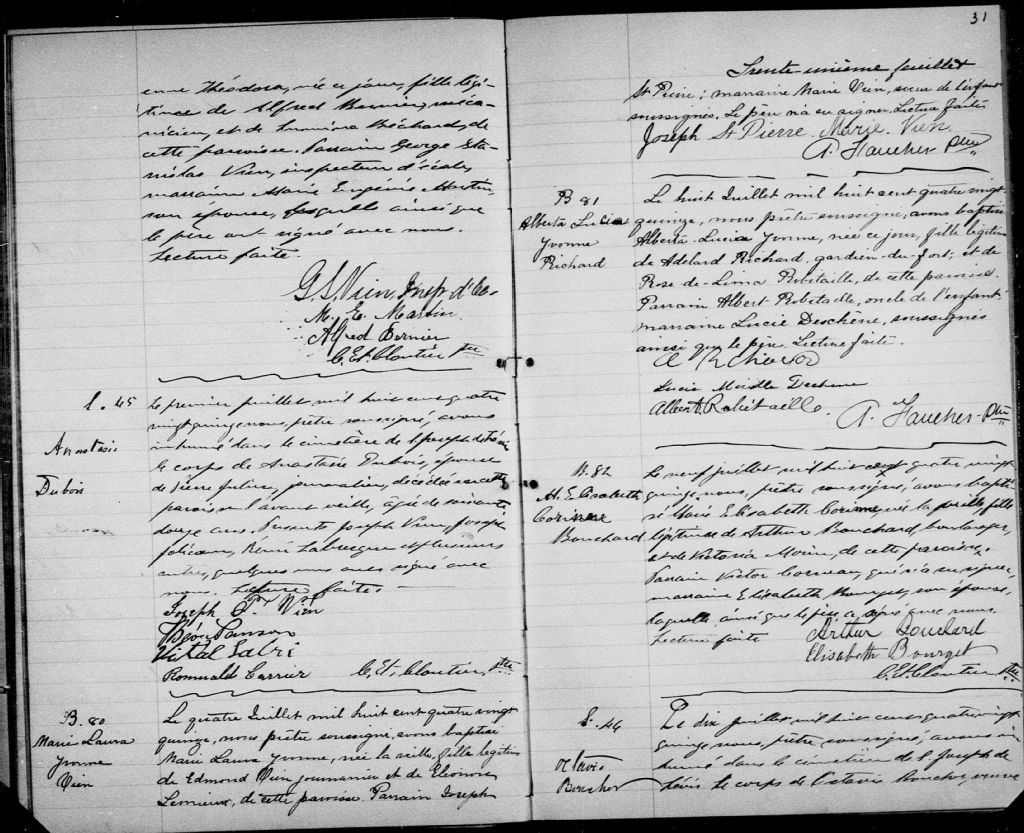 enne Théodora, née ce jour, fille légi-
time de Alfred Bernier, méca-
nicien, et de Béchard, de
cette paroisse. Parrain George Sta-
nislas Vien, inspecteur d'écoles,
marraine Marie Eugénie Martin,
son épouse, lesquels ainsi que
le père ont signé avec nous.
Lecture faite.
G. S. Vien, Insp. d'Ec-
M. E. Martin
Alfred Bernier
C. Et. Cloutier ptre
S. 45
Anastasie
Dubois
Le premier juillet mil huit cent quatre
vingt quinze nous, prêtre soussigné, avons
inhumé dans le cimetière de St Joseph de Lévis
le corps de Anastasie Dubois, épouse
de Pierre, journalier, décédée en cette
paroisse l'avant veille, âgée de soixante
douze ans. Présents Joseph Vien, Joseph
René Labrecque et plusieurs
autres, quelques uns ont signé avec
nous. Lecture faite.
Joseph Vien
Léon Samson
Vital Labri
Romuald Carrier C. Et. Cloutier, ptre
B. 80
Marie Laura
Yvonne
Vien
Le quatre Juillet mil huit cent quatre vingt
quinze, nous prêtre soussigné, avons baptisé
Marie Laura Yvonne, née la veille, fille légitime
de Edmond Vien journalier et de Eléonore
Lemieux, de cette paroisse. Parrain Joseph
31
Trente-unième feuillet
St Pierre; marraine Marie Vien, sœur de l'enfant
soussignés. Le père n'a su signer. Lecture faite
Joseph St Pierre Marie Vien
A. Faucher Ptre
B 81
Alberta Lucia
Yvonne
Richard
Le huit Juillet mil huit cent quatre vingt-
quinze, nous prêtre soussigné, avons baptisé
Alberta Lucia Yvonne, née ce jour, fille légitime
de Adelard Richard, gardien-du-fort; et de
Rose-de-Lima Robitaille, de cette paroisse.
Parrain Albert Robitaille, oncle de l'enfant
marraine Lucie Deschêne, soussignés
ainsi que le père. Lecture faite.
A Richard
Lucie Dechene
Albert Robitaille. A. Faucher Ptre
B. 82
M. Elisabeth
Corinne
Bouchard
Le neuf juillet mil huit cent quatre vingt
quinze nous, prêtre soussigné, avons bapti-
sé Marie Elisabeth Corinne née la veille, fille
légitime de Arthur Bouchard, boulanger,
et de Victoria Morin, de cette paroisse.
Parrain Victor, qui n'a su signer,
marraine Elisabeth Bourget, son épouse,
laquelle ainsi que le père a signé avec nous.
Lecture faite
Arthur Bouchard
Elisabeth Bourget
C. Et. Cloutier ptre
S. 46
Octavie
Boucher
Le dix juillet mil huit cent quatre vingt
quinze nous, prêtre soussigné, avons in-
humé dans le cimetière de St Joseph de
Lévis le corps de Octavie Boucher, veuve